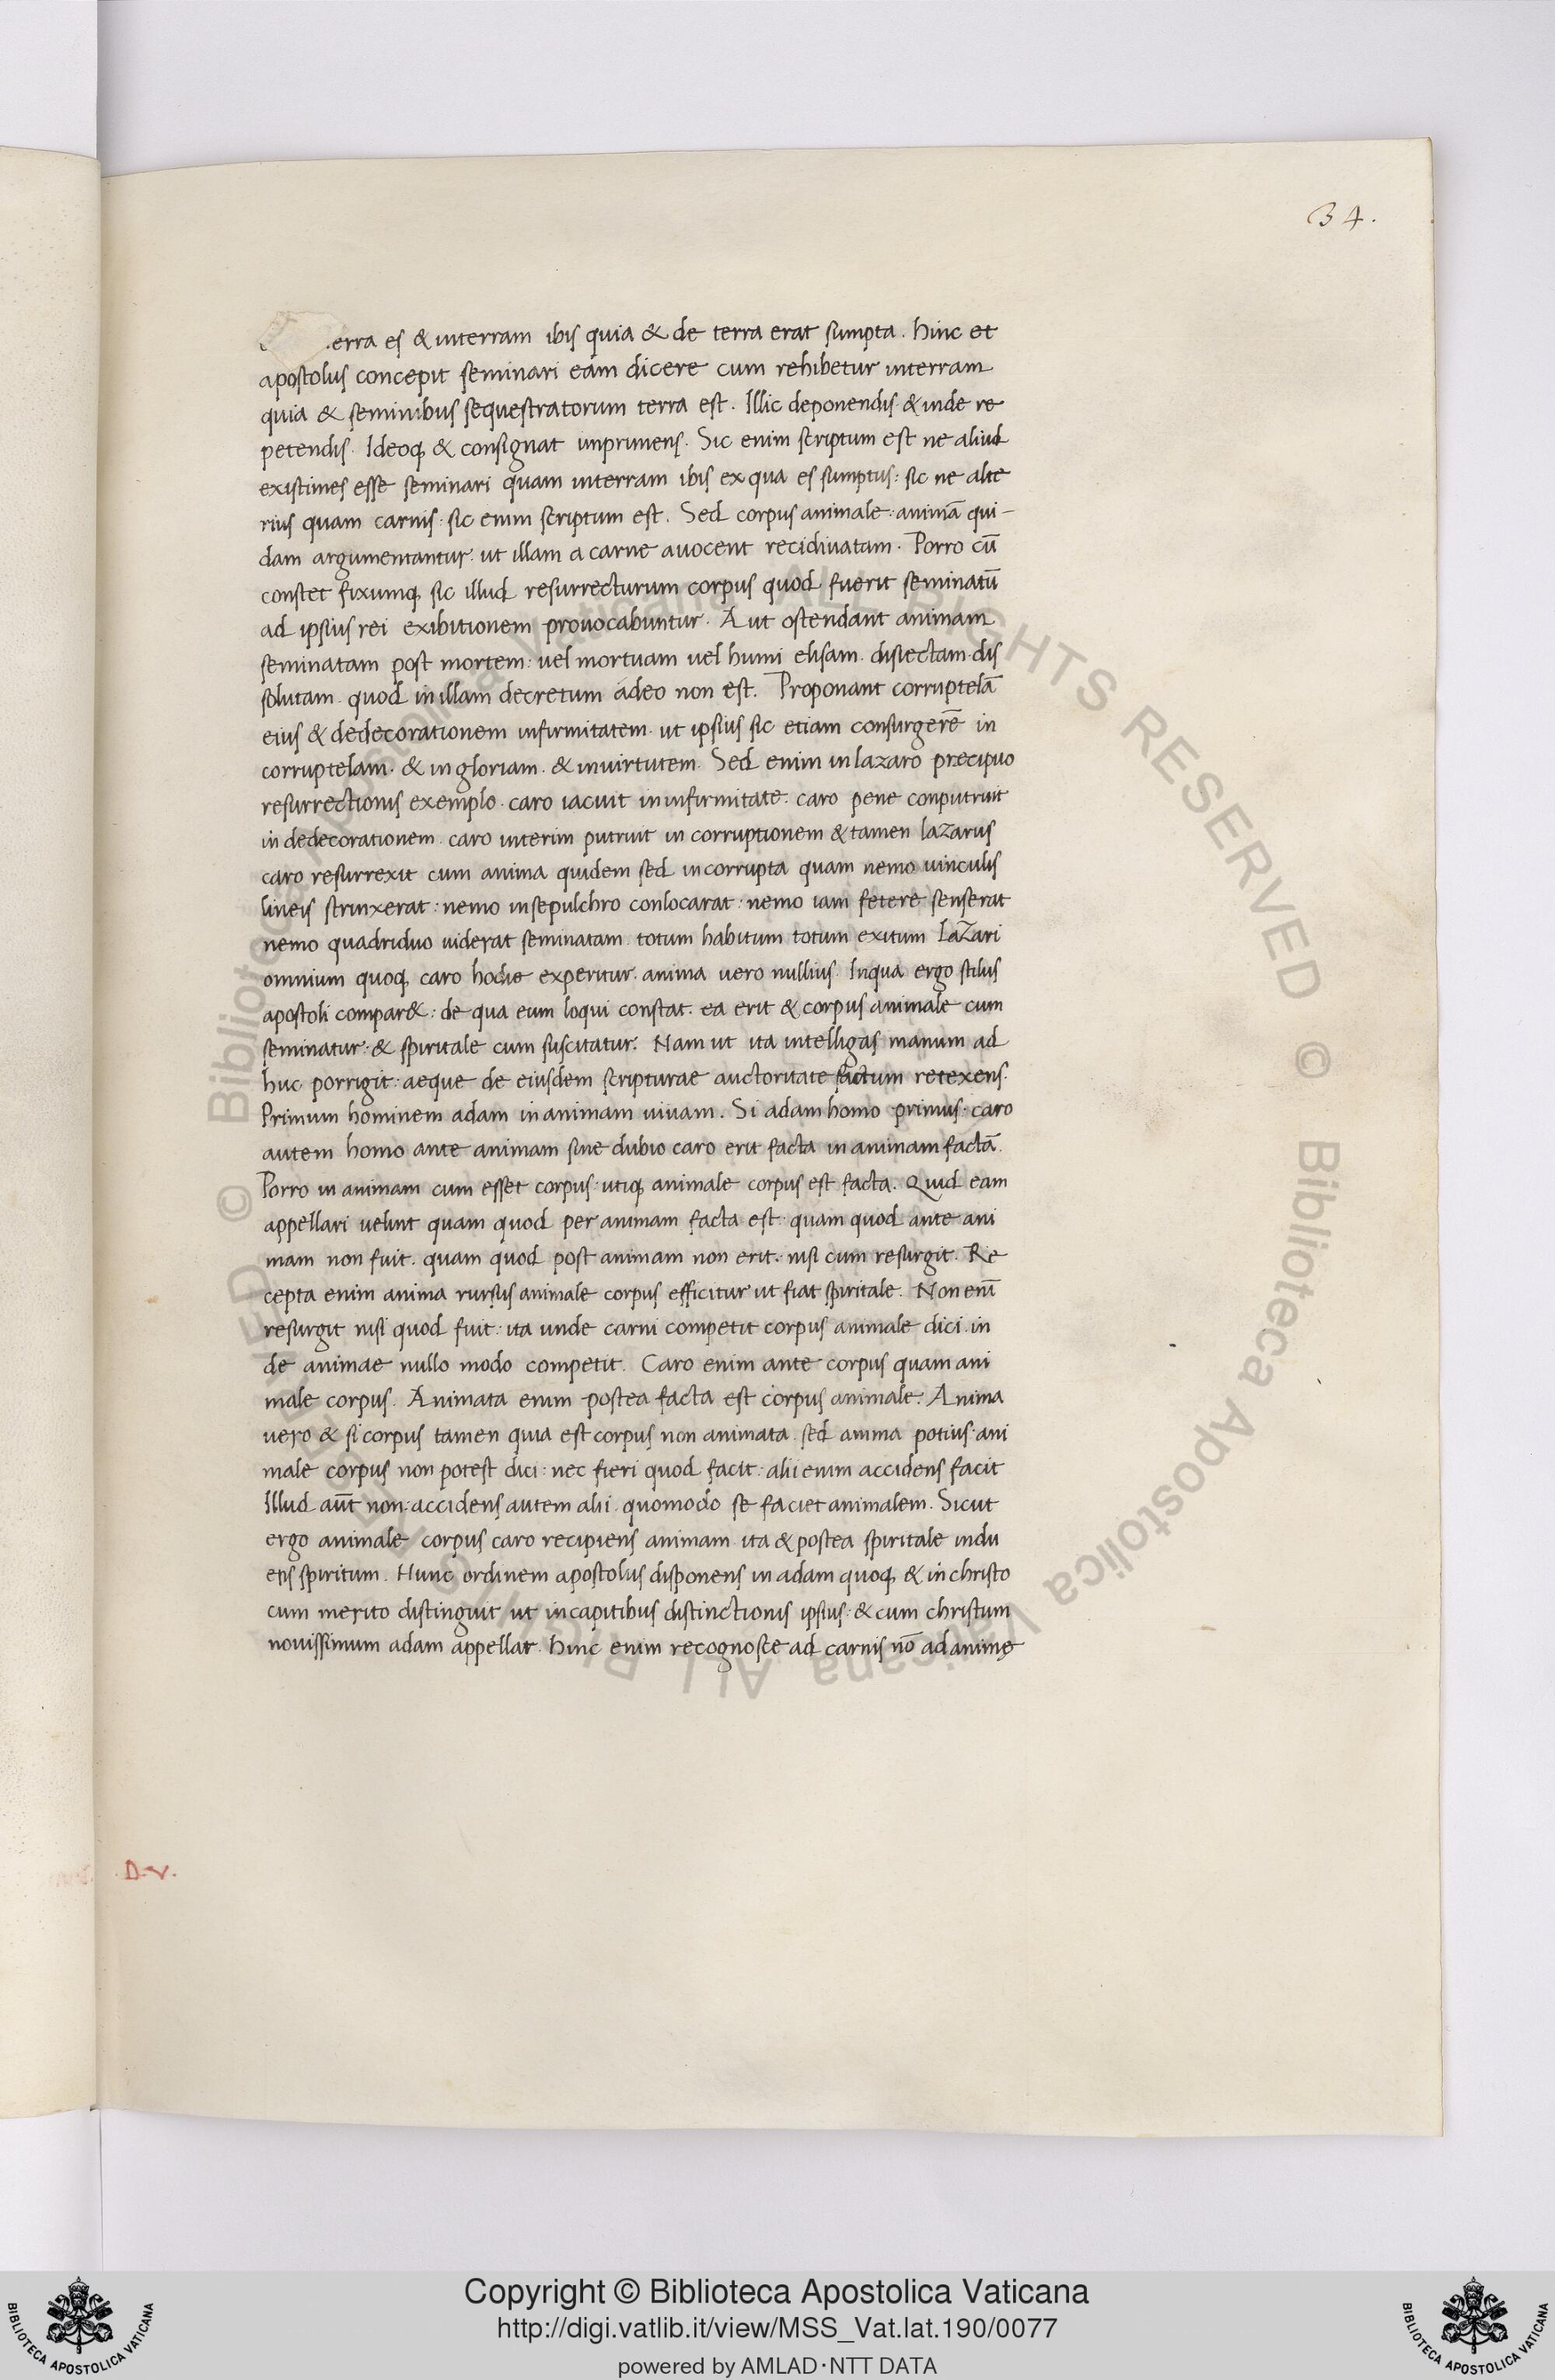 34.
erra es & interram ibis quia & de terra erat sumpta. hinc et
apostolus concepit seminari eam dicere cum rehibetur interram
quia & seminibus sequestratorum terra est. Illic deponendis & inde re
petendis. Ideoq; & consignat imprimens. Sic enim scriptum est ne aliud
existimes esse seminari quam interram ibis ex qua es sumptus: sic ne alte
rius quam carnis: sic enim scriptum est. Sed corpus animale: animā qui-
dam argumentantur. ut illam a carne auocent recidiuatam. Porro cū
constet fixumq; sic illud resurrecturum corpus quod fuerit seminatū
ad ipsius rei exibitionem prouocabuntur. Aut ostendant animam
seminatam post mortem: uel mortuam uel humi elisam. disiectam. dis
solutam. quod in illam decretum adeo non est. Proponant corruptelā
eius & dedecorationem infirmitatem. ut ipsius sic etiam consurgerē in
corruptelam. & in gloriam. & inuirtutem. Sed enim in lazaro precipuo
resurrectionis exemplo. caro iacuit in infirmitate. caro pene conputruit
in dedecorationem. caro interim putruit in corruptionem & tamen lazarus
caro resurrexit cum anima quidem sed incorrupta quam nemo uinculis
lineis strinxerat: nemo insepulchro conlocarat: nemo iam fetere senserat
nemo quadriduo uiderat seminatam. totum habitum totum exitum Lazari
omnium quoq; caro hodie experitur. anima uero nullius. Inqua ergo stilus
apostoli compar&: de qua eum loqui constat. ea erit & corpus animale cum
seminatur: & spiritale cum suscitatur. Nam ut ita intelligas manum ad
huc porrigit: aeque de eiusdem scripturae auctoritate factum retexens.
Primum hominem adam in animam uiuam. Si adam homo primus. caro
autem homo ante animam sine dubio caro erit facta in animam factā.
Porro in animam cum esset corpus: utiq; animale corpus est facta. Quid eam
appellari uelint quam quod per animam facta est: quam quod ante ani
mam non fuit. quam quod post animam non erit. nisi cum resurgit. Re
cepta enim anima rursus animale corpus efficitur ut fiat spiritale. Non enī
resurgit nisi quod fuit: ita unde carni competit corpus animale dici. in
de animae nullo modo competit. Caro enim ante corpus quam ani
male corpus. Animata enim postea facta est corpus animale. Anima
uero & si corpus tamen quia est corpus non animata. sed anima potius ani
male corpus non potest dici: nec fieri quod facit: alii enim accidens facit
Illud aūt non: accidens autem alii. quomodo se faciet animalem. Sicut
ergo animale corpus caro recipiens animam. ita & postea spiritale indu
ens spiritum. Hunc ordinem apostolus disponens in adam quoq; & in christo
cum merito distinguit ut in capitibus distinctionis ipsius: & cum christum
nouissimum adam appellat. hinc enim recognosce ad carnis nō ad animę
D.v.
© Biblioteca Apostolica Vaticana ALL RIGHTS RESERVED © Biblioteca Apostolica Vaticana ALL RIGHTS RESERVED
Copyright © Biblioteca Apostolica Vaticana
http://digi.vatlib.it/view/MSS_Vat.lat.190/0077
powered by AMLAD·NTT DATA
BIBLIOTECA APOSTOLICA VATICANA
BIBLIOTECA APOSTOLICA VATICANA